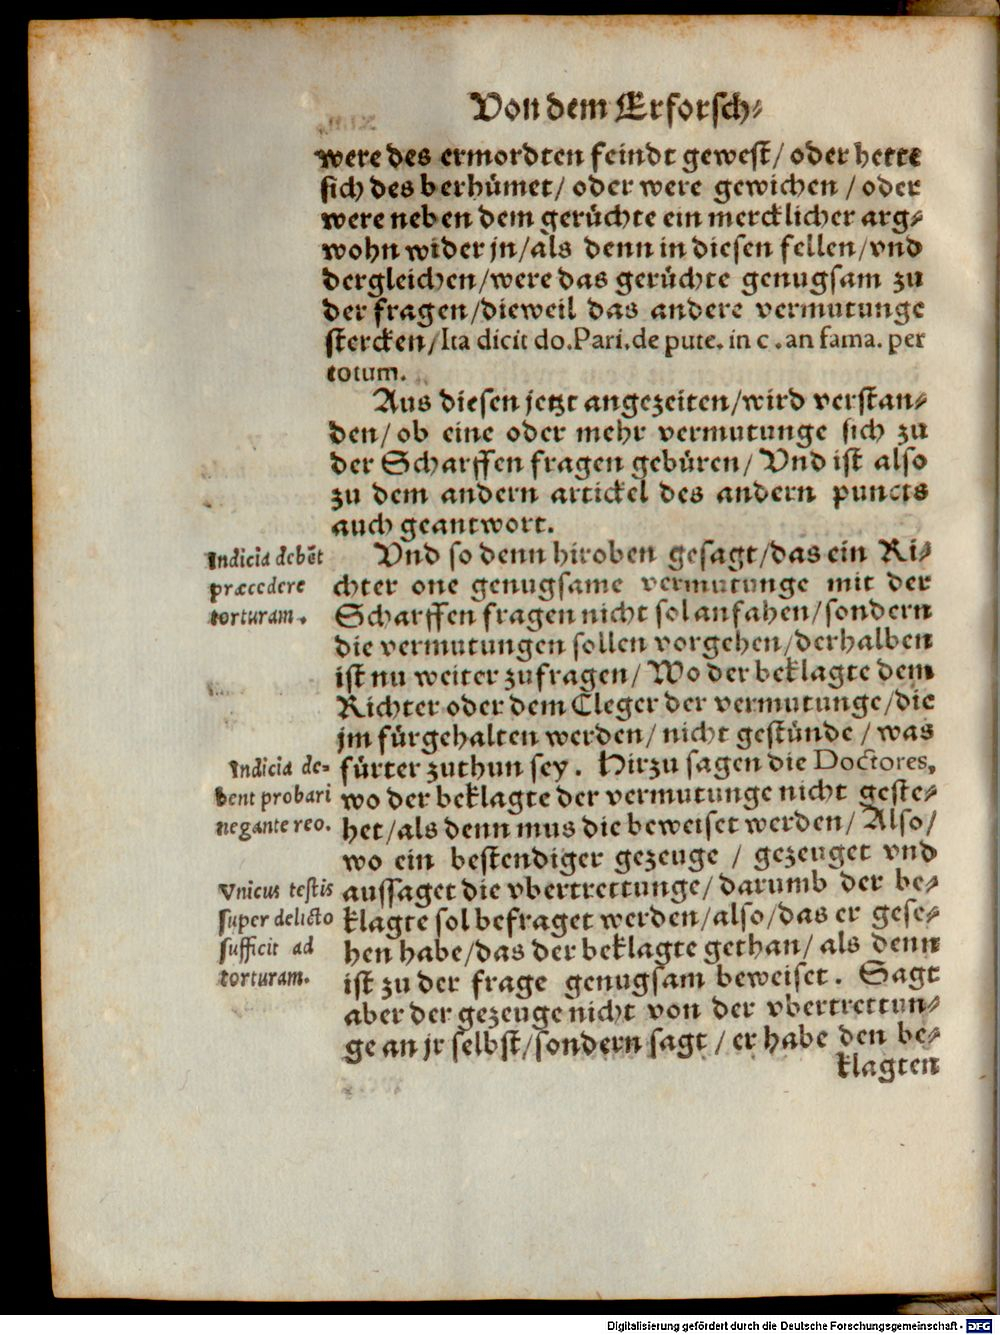 Von dem Erforsch⸗
were des ermordten feindt gewest/ oder hette
sich des berhümet/ oder were gewichen / oder
were neben dem gerüchte ein mercklicher arg⸗
wohn wider jn/als denn in diesen fellen/vnd
dergleichen/were das gerüchte genugsam zu
der fragen/dieweil das andere vermutunge
stercken/Ita dicit do.Pari.de pute. in c .an fama. per
totum.
Aus diesen jetzt angezeiten/wird verstan⸗
den/ ob eine oder mehr vermutunge sich zu
der Scharffen fragen gebüren/ Vnd ist also
zu dem andern artickel des andern puncts
auch geantwort.
Indicia debēt
præcedere
torturam.
Vnd so denn hiroben gesagt/das ein Ri⸗
chter one genugsame vermutunge mit der
Scharffen fragen nicht sol anfahen/sondern
die vermutungen sollen vorgehen/derhalben
ist nu weiter zufragen/ Wo der beklagte dem
Richter oder dem Cleger der vermutunge/die
jm fürgehalten werden/ nicht gestünde / was
Indicia de-
bent probari
negante reo.
fürter zuthun sey. Hirzu sagen die Doctores,
wo der beklagte der vermutunge nicht geste⸗
het/als denn mus die beweiset werden/ Also/
wo ein bestendiger gezeuge / gezeuget vnd
Vnicus testis
super delicto
sufficit ad
torturam.
aussaget die vbertrettunge/darumb der be⸗
klagte sol befraget werden/also/das er gese⸗
hen habe/das der beklagte gethan/ als denn
ist zu der frage genugsam beweiset. Sagt
aber der gezeuge nicht von der vbertrettun⸗
ge an jr selbst/sondern sagt / er habe den be⸗
klagten
Digitalisierung gefördert durch die Deutsche Forschungsgemeinschaft - DFG